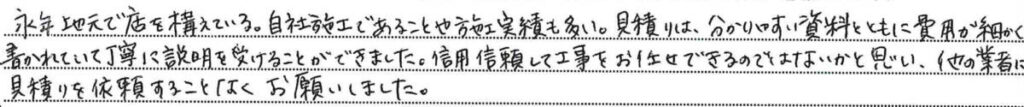 永年地元で店を構えている。自社施工であることや施工実績も多い。見積りは、分かりやすい資料とともに費用が細かく
書かれていて丁寧に説明を受けることができました。信用信頼して工事をお任せできるのではないかと思い、他の業者に
見積りを依頼することはなくお願いしました。